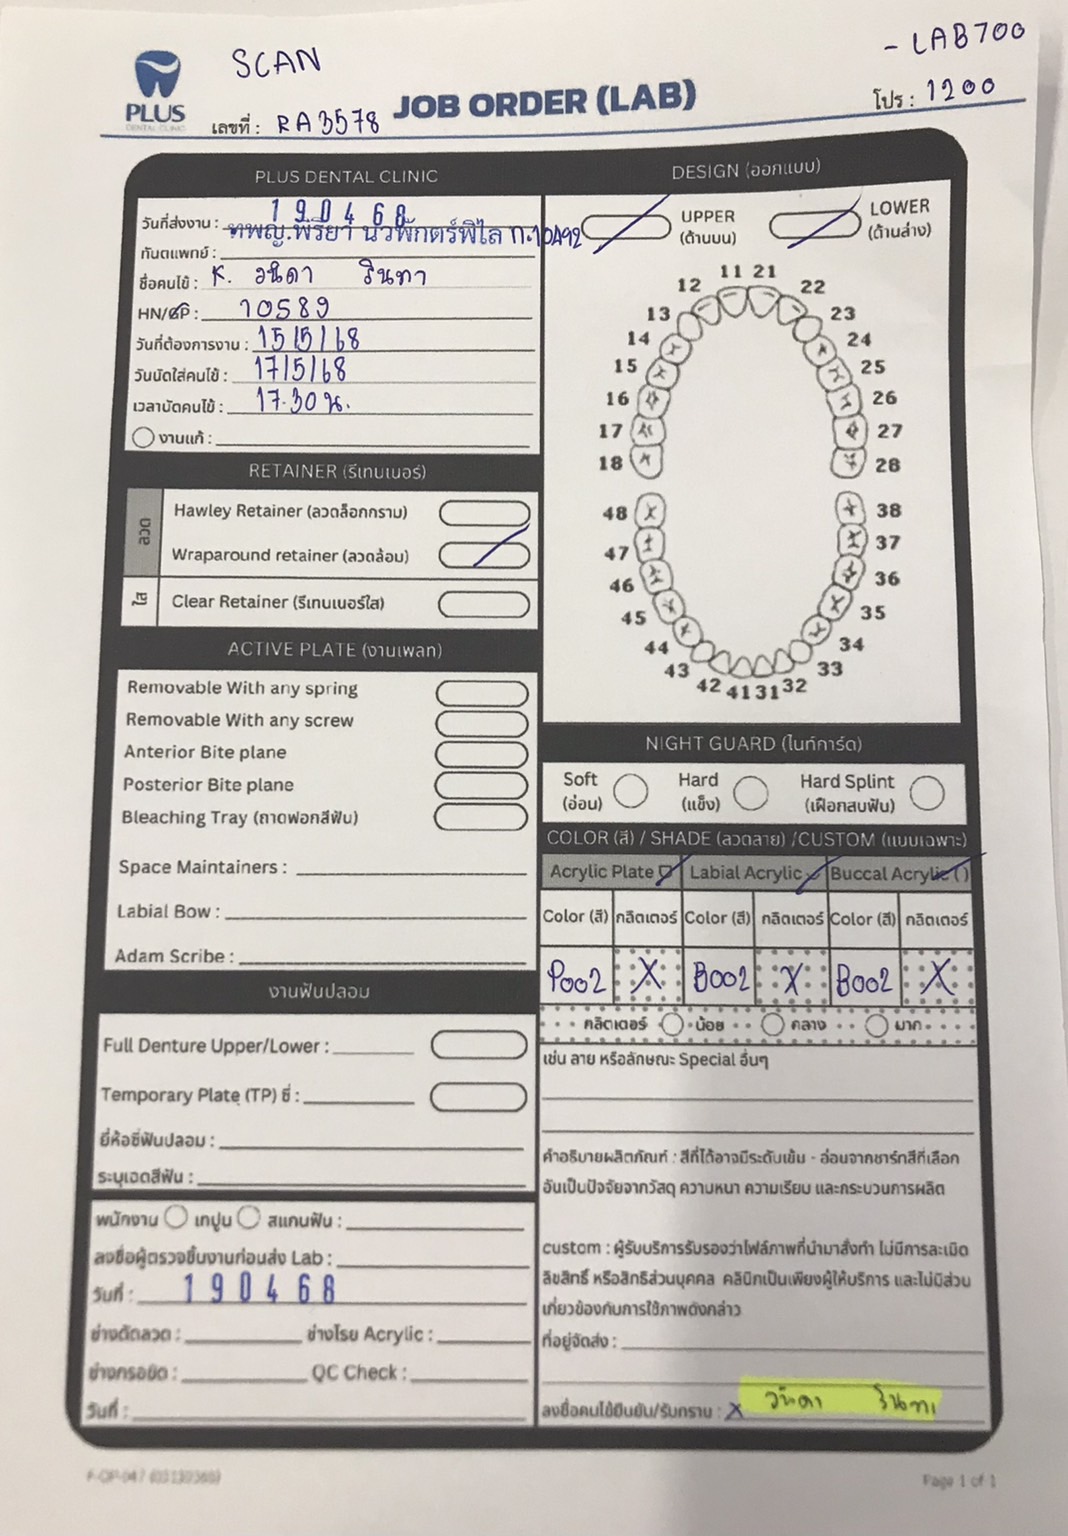 SCAN
- LAB700
PLUS
DENTAL CLINIC
เลขที่ : RA3578
JOB ORDER (LAB)
โปร : 1200
PLUS DENTAL CLINIC
วันที่ส่งงาน : 190468
ทพญ.พิริยา นวพักตร์พิไล ท.10492
ทันตแพทย์ :
ชื่อคนไข้ : K. วนิดา รินทา
HN/CP : 10589
วันที่ต้องการงาน : 15/5/68
วันนัดใส่คนไข้ : 17/5/68
เวลานัดคนไข้ : 17.30 น.
งานแก้ :
RETAINER (รีเทนเนอร์)
ลวด
Hawley Retainer (ลวดล็อกกราม)
Wraparound retainer (ลวดล้อม)
ใส
Clear Retainer (รีเทนเนอร์ใส)
ACTIVE PLATE (งานเพลท)
Removable With any spring
Removable With any screw
Anterior Bite plane
Posterior Bite plane
Bleaching Tray (ถาดฟอกสีฟัน)
Space Maintainers :
Labial Bow :
Adam Scribe :
งานฟันปลอม
Full Denture Upper/Lower :
Temporary Plate (TP) ซี่ :
ยี่ห้อซี่ฟันปลอม :
ระบุเฉดสีฟัน :
พนักงาน เทปูน สแกนฟัน :
ลงชื่อผู้ตรวจชิ้นงานก่อนส่ง Lab :
วันที่ : 190468
ช่างดัดลวด : ช่างโรย Acrylic :
ช่างกรอขัด : QC Check :
วันที่ :
DESIGN (ออกแบบ)
UPPER
(ด้านบน)
LOWER
(ด้านล่าง)
11 21
12 22
13 23
14 24
15 25
16 26
17 27
18 28
48 38
47 37
46 36
45 35
44 34
43 33
42 41 31 32
NIGHT GUARD (ไนท์การ์ด)
Soft
(อ่อน)
Hard
(แข็ง)
Hard Splint
(เฝือกสบฟัน)
COLOR (สี) / SHADE (ลวดลาย) /CUSTOM (แบบเฉพาะ)
Acrylic Plate Labial Acrylic Buccal Acrylic
Color (สี) กลิตเตอร์ Color (สี) กลิตเตอร์ Color (สี) กลิตเตอร์
P002 X B002 X B002 X
กลิตเตอร์ น้อย กลาง มาก
เช่น ลาย หรือลักษณะ Special อื่นๆ
คำอธิบายผลิตภัณฑ์ : สีที่ได้อาจมีระดับเข้ม - อ่อนจากชาร์ทสีที่เลือก
อันเป็นปัจจัยจากวัสดุ ความหนา ความเรียบ และกระบวนการผลิต
custom : ผู้รับบริการรับรองว่าไฟล์ภาพที่นำมาสั่งทำ ไม่มีการละเมิด
ลิขสิทธิ์ หรือสิทธิส่วนบุคคล คลินิกเป็นเพียงผู้ให้บริการ และไม่มีส่วน
เกี่ยวข้องกับการใช้ภาพดังกล่าว
ที่อยู่จัดส่ง :
ลงชื่อคนไข้ยืนยัน/รับทราบ : X วนิดา รินทา
Page 1 of 1